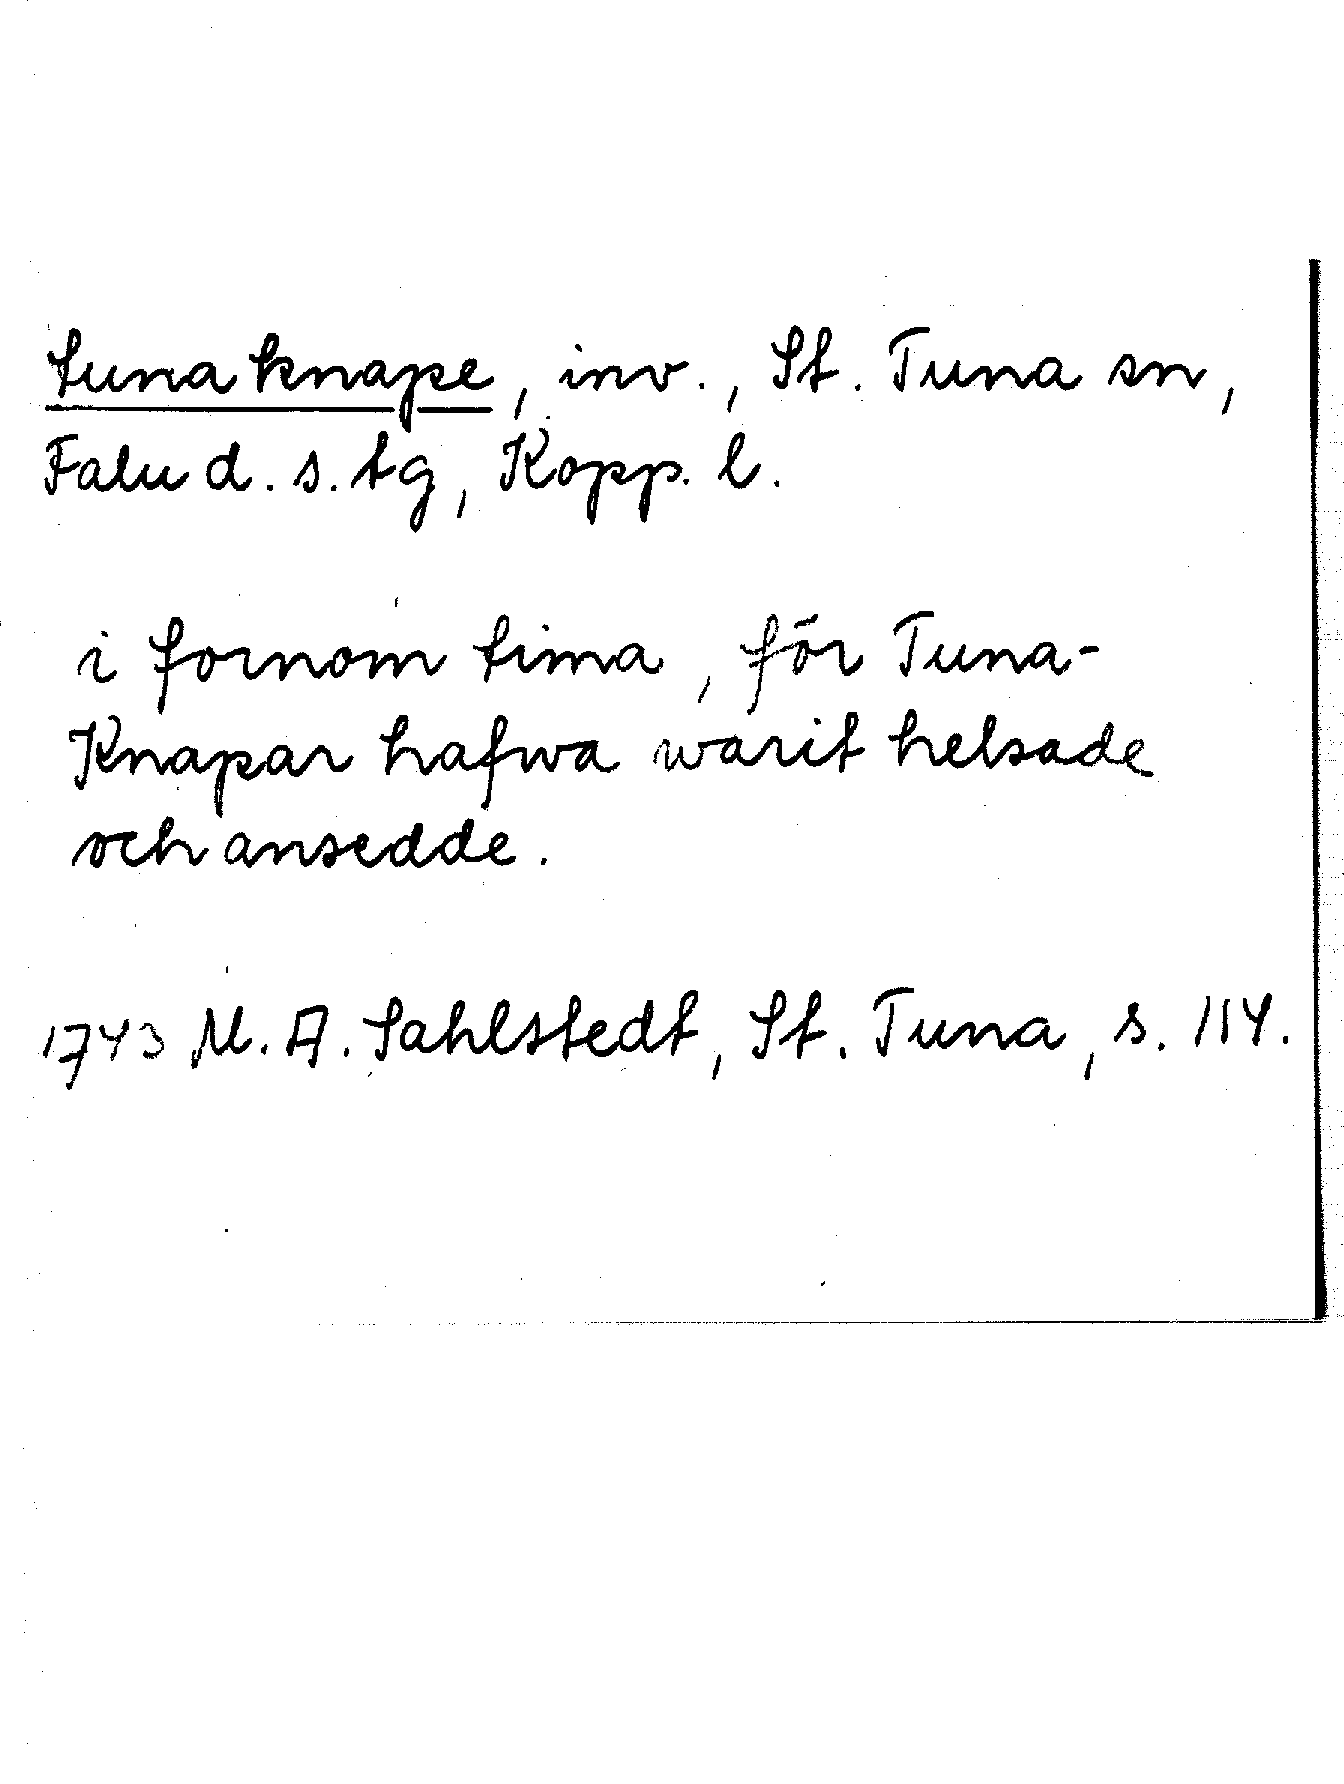 tunaknape, inv., St. Tuna sn,
Falu d. s. tg, Kopp. l.
i fornom tima, för Tuna-
Knapar hafwa warit helsade
och ansedde.
1743 M. A. Sahlstedt, St. Tuna, s. 114.